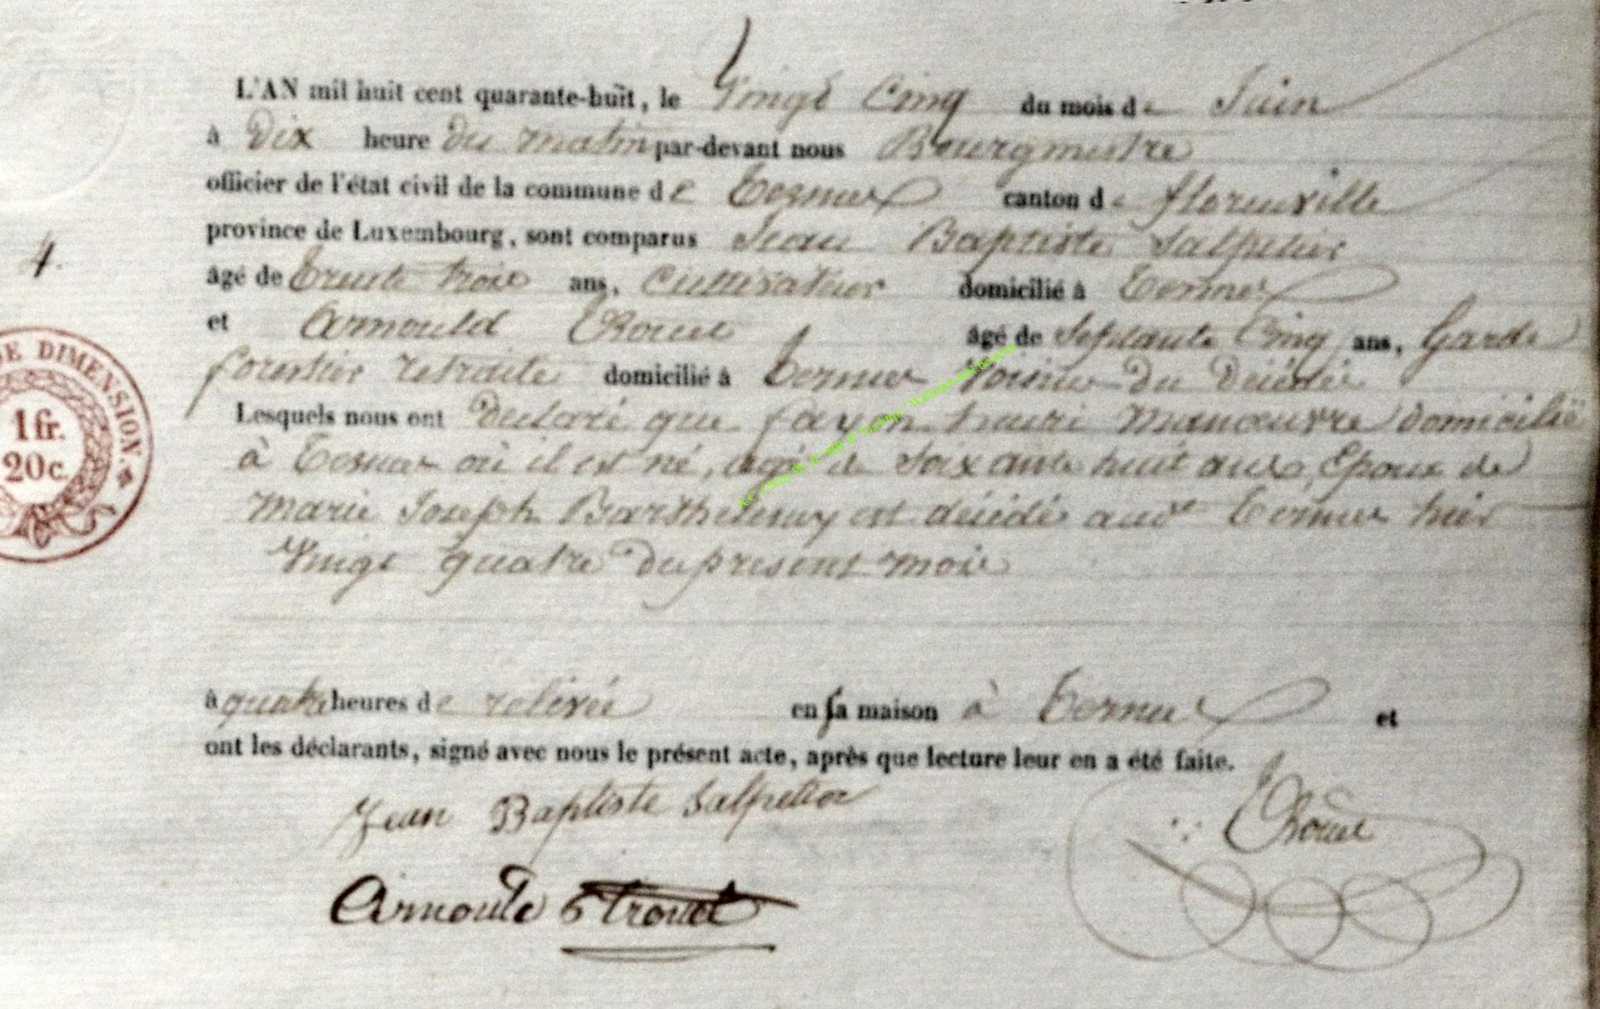 L'AN mil huit cent quarante-huit, le Vingt Cinq du mois de Juin
à Dix heure du matin par-devant nous Bourgmestre
officier de l'état civil de la commune de Termes canton de florenville
province de Luxembourg, sont comparus Jean Baptiste Salpetier
4.
âgé de Trente trois ans, Cultivateur domicilié à Termes
et Arnould Théodore âgé de Septante Cinq ans, Garde
forestier retraité domicilié à Termes Voisins du décédé
Lesquels nous ont Déclaré que fayon henri Manoeuvre domicilié
à Termes où il est né, agé de Soixante huit ans, Epoux de
Marie Joseph Barthelemy est décédé audt Termes hier
Vingt quatre du présent mois
DE DIMENSION.
1 fr.
20 c.
à quatre heures de relevée en sa maison à Termes et
ont les déclarants, signé avec nous le présent acte, après que lecture leur en a été faite.
Jean Baptiste Salpetier
Arnould